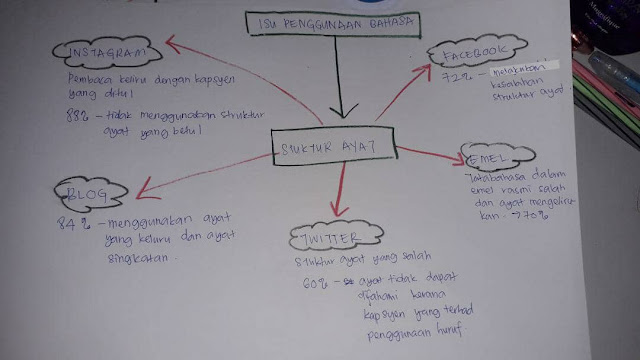 ISU PENGGUNAAN BAHASA
INSTAGRAM
Pembaca keliru dengan kapsyen
yang ditul
88% - tidak menggunakan struktur
ayat yang betul
FACEBOOK
72% - melakukan
kesalahan
struktur ayat
STUKTUR AYAT
EMEL
Tatabahasa dalam
emel rasmi salah
dan ayat mengeliru
kan - 770%
BLOG
84% - menggunakan ayat
yang keluru dan ayat
singkatan.
TWITTER
Stuktur ayat yang salah
60% - ayat tidak dapat
difahami kerana
kapsyen yang terhad
penggunaan huruf.